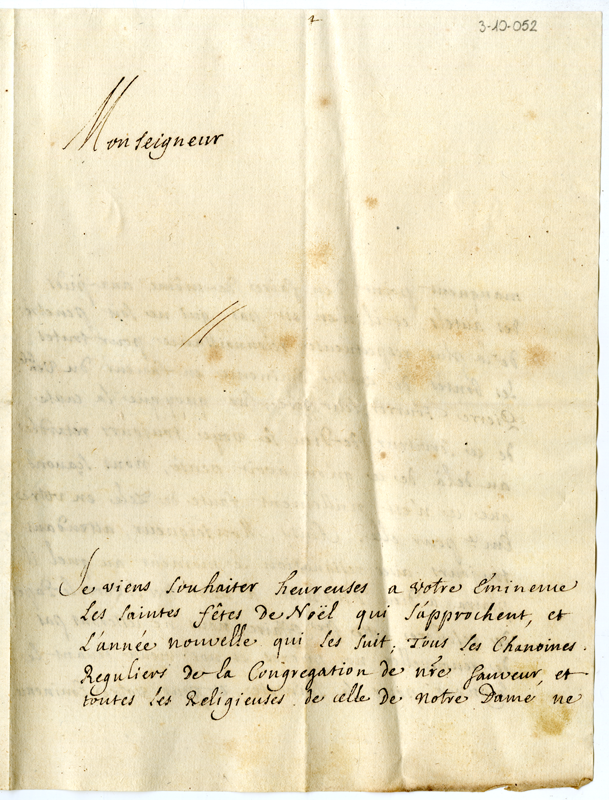 3-10-052
Monseigneur
Je viens souhaiter heureuses a votre Eminence
les saintes fêtes de Noël qui s'approchent, et
L'année nouvelle qui les suit; Tous les Chanoines
Reguliers de la Congregation de nr̄e Sauveur, et
toutes les Religieuses de celle de Notre Dame ne